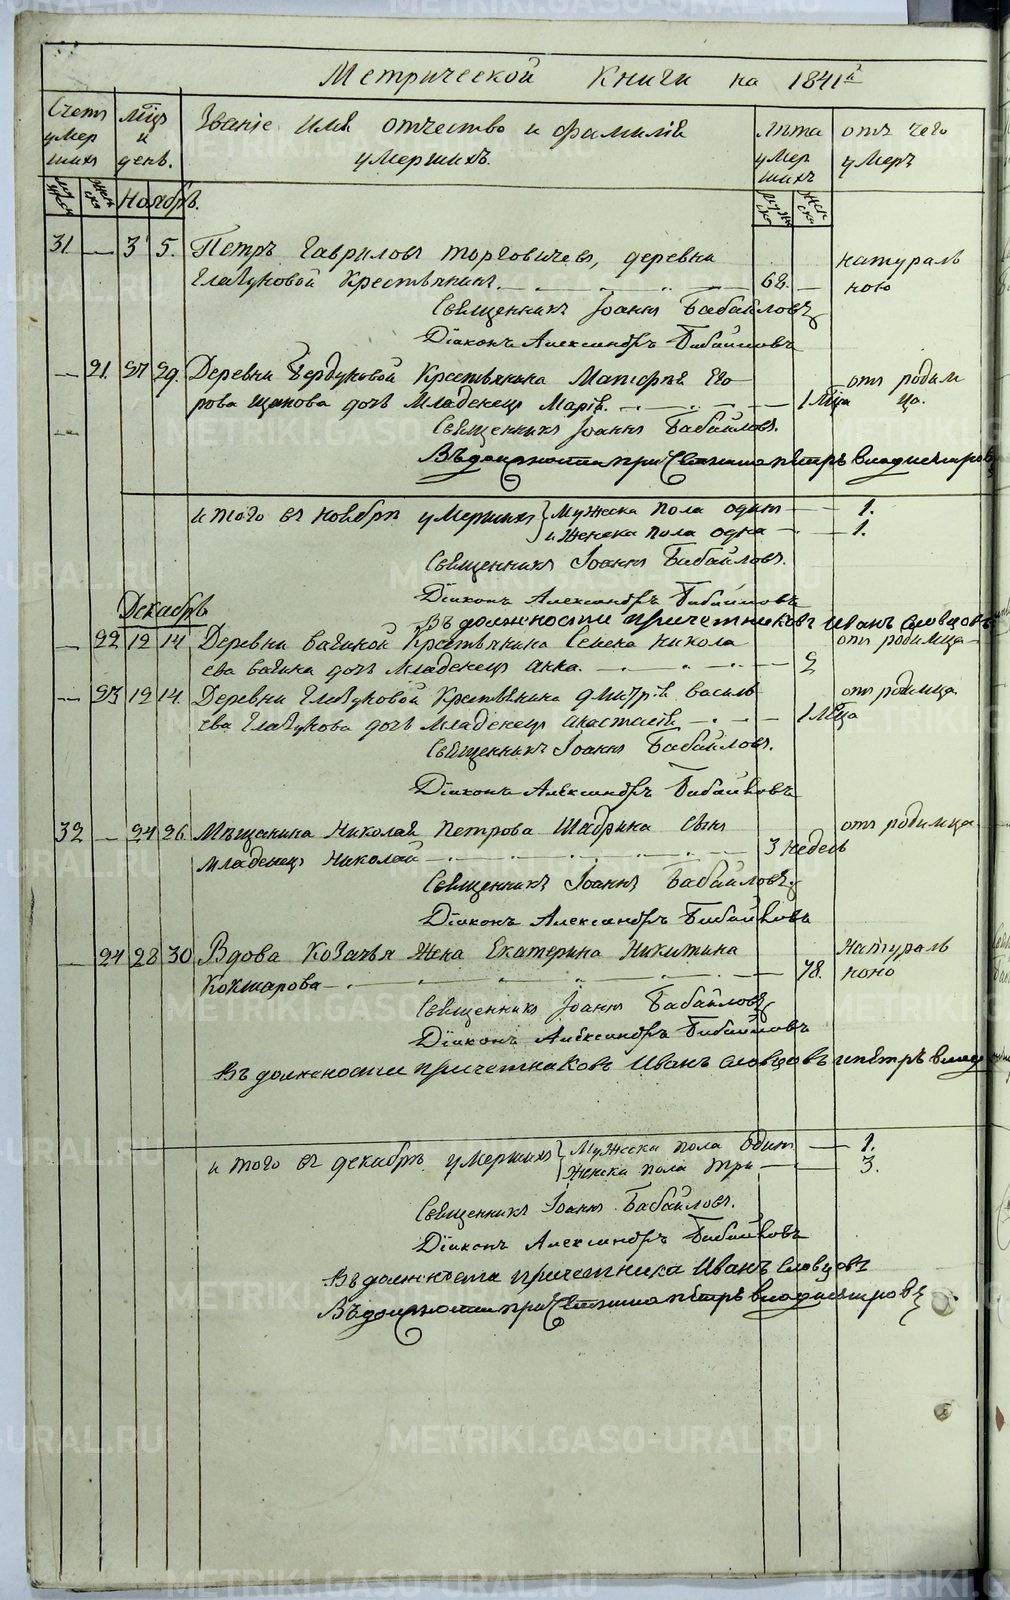 Метрической Книги на 1841й
Счетъ умершихъ
мцъ и день.
Званіе имя отчество и фамилія умершихъ.
лѣта умершихъ
отъ чего умеръ
Ноябрь.
31. — 3 5. Петръ Гавриловъ Торговичевъ, деревни натураль
Глазуновой Крестьянинъ. — 68. — ною
Священникъ Іоаннъ Бабайловъ
Діаконъ Александръ Бабайловъ
— 21. 27 29. Деревни Крестьянина его отъ родим
рова дочь Младенец Марія. — 1 мца ца.
Священникъ Іоаннъ Бабайловъ.
Въ должности Петръ Владиміровъ
итого въ ноябрѣ умершихъ Мужеска пола один — 1.
и Женска пола одна — 1.
Священникъ Іоаннъ Бабайловъ.
Діаконъ Александръ Бабайловъ
Въ должности причетниковъ Иванъ Словцовъ
Декабрь
— 22 12 14 Деревни Крестьянина Семена Никола отъ родимца
ева дочь Младенец Анна. — 2
— 23 12 14. Деревни Глазуновой Крестьянина Дмитрія Василь отъ родимца
ева Глазунова дочь Младенец Анастасія — 1 мца
Священникъ Іоаннъ Бабайловъ.
Діаконъ Александръ Бабайловъ
32 — 24 26 Мѣщанина Николая Петрова Шабрина сынъ отъ родимца
младенец Николай — 3 недель
Священникъ Іоаннъ Бабайловъ
Діаконъ Александръ Бабайловъ
— 24 28 30 Вдова Козачья Жена Екатерина Никитина Натураль
Кокшарова — 78. ною
Священникъ Іоаннъ Бабайловъ
Діаконъ Александръ Бабайловъ
Въ должности причетниковъ Иванъ Словцовъ и Петръ
и того въ декабрѣ умершихъ Мужеска пола Один — 1.
Женска пола три — 3.
Священникъ Іоаннъ Бабайловъ.
Діаконъ Александръ Бабайловъ
Въ должности причетника Иванъ Словцовъ
Въ должности Петръ Владиміровъ
METRIKI.GASO-URAL.RU